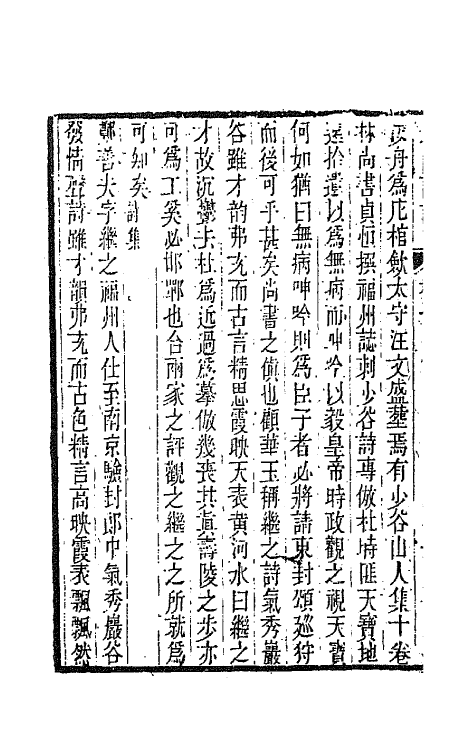 殳舟爲庀棺歛太守汪文盛塟焉有少谷山人集十卷
林尚書貞恒撰福州誌刺少谷詩專倣杜時匪天寶地
遠拾遺以爲無病而呻吟以毅皇帝時政觀之視天寶
何如猶曰無病呻吟則爲臣子者必將請東封頌廵狩
而後可乎甚矣尚書之傎也顧華玉稱繼之詩氣秀巖
谷雖才韵弗充而古言精思霞映天表黄河水曰繼之
才故沉鬱去杜爲近過爲摹倣幾喪其眞壽陵之步亦
可爲工矣必邯鄲也合兩家之評觀之繼之之所就爲
可知矣詩集
鄭善夫字繼之福州人仕至南京驗封郎中氣秀巖谷
發情聲詩雖才韻弗充而古色精言高映霞表飄飄然